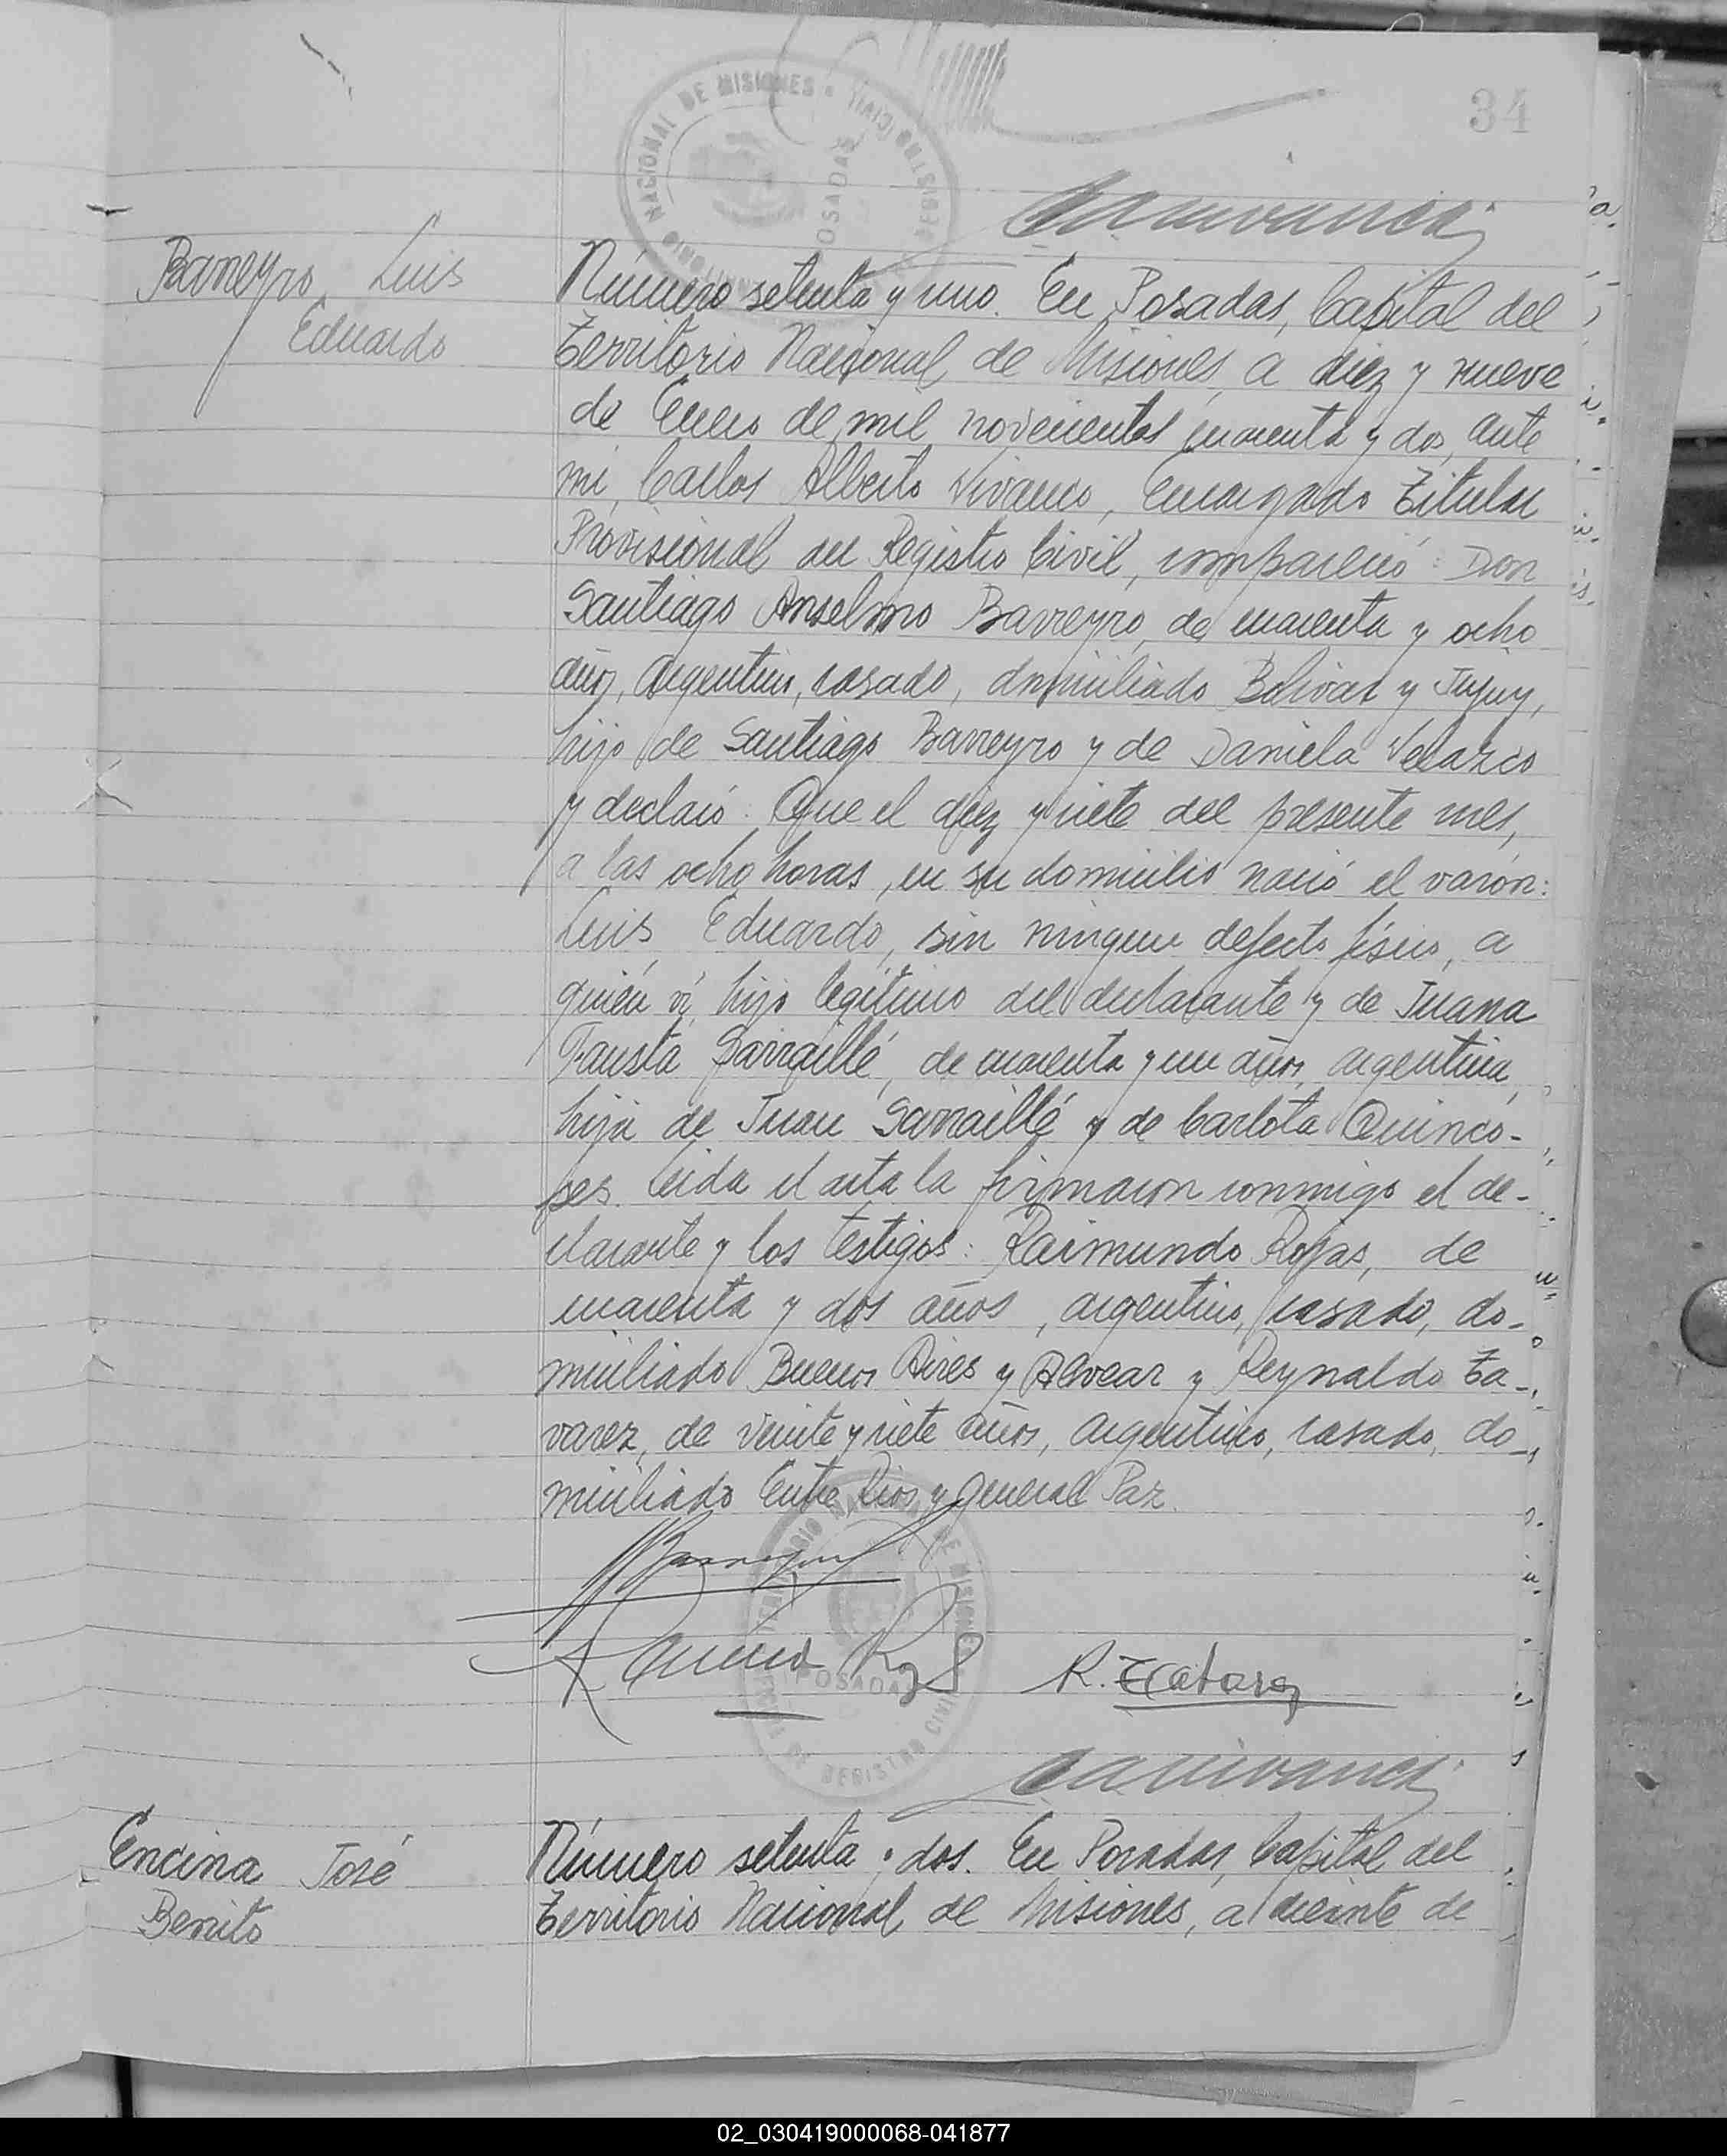 34
TERRITORIO NACIONAL DE MISIONES • REGISTRO CIVIL
POSADAS
Barreyro Luis
Eduardo
Número setenta y uno. En Posadas, Capital del
Territorio Nacional de Misiones, a diez y nueve
de Enero de mil novecientos cuarenta y dos, ante
mi, Carlos Alberto Vivanco, Encargado Titular
Provisional del Registro Civil, compareció: Don
Santiago Anselmo Barreyro, de cuarenta y ocho
años, argentino, casado, domiciliado Bolivar y Jujuy,
hijo de Santiago Barreyro y de Daniela Velazco
y declaró: Que el diez y siete del presente mes,
a las ocho horas, en su domicilio nació el varón:
Luis Eduardo, sin ningun defecto físico, a
quién ví, hijo legítimo del declarante y de Juana
Fausta Sarraillé, de cuarenta y un años, argentina,
hija de Juan Sarraillé y de Carlota Quinco-
ses. Leida el acta la firmaron conmigo el de-
clarante y los testigos: Raimundo Rojas, de
cuarenta y dos años, argentino, casado, do-
miciliado Buenos Aires y Alvear y Reynaldo Ta-
varez, de veinte y siete años, argentino, casado, do-
miciliado Entre Rios y General Paz.
TERRITORIO NACIONAL DE MISIONES
POSADAS
REGISTRO CIVIL
Encina José
Benito
Número setenta y dos. En Posadas, Capital del
Territorio Nacional de Misiones, a veinte de
02_030419000068-041877